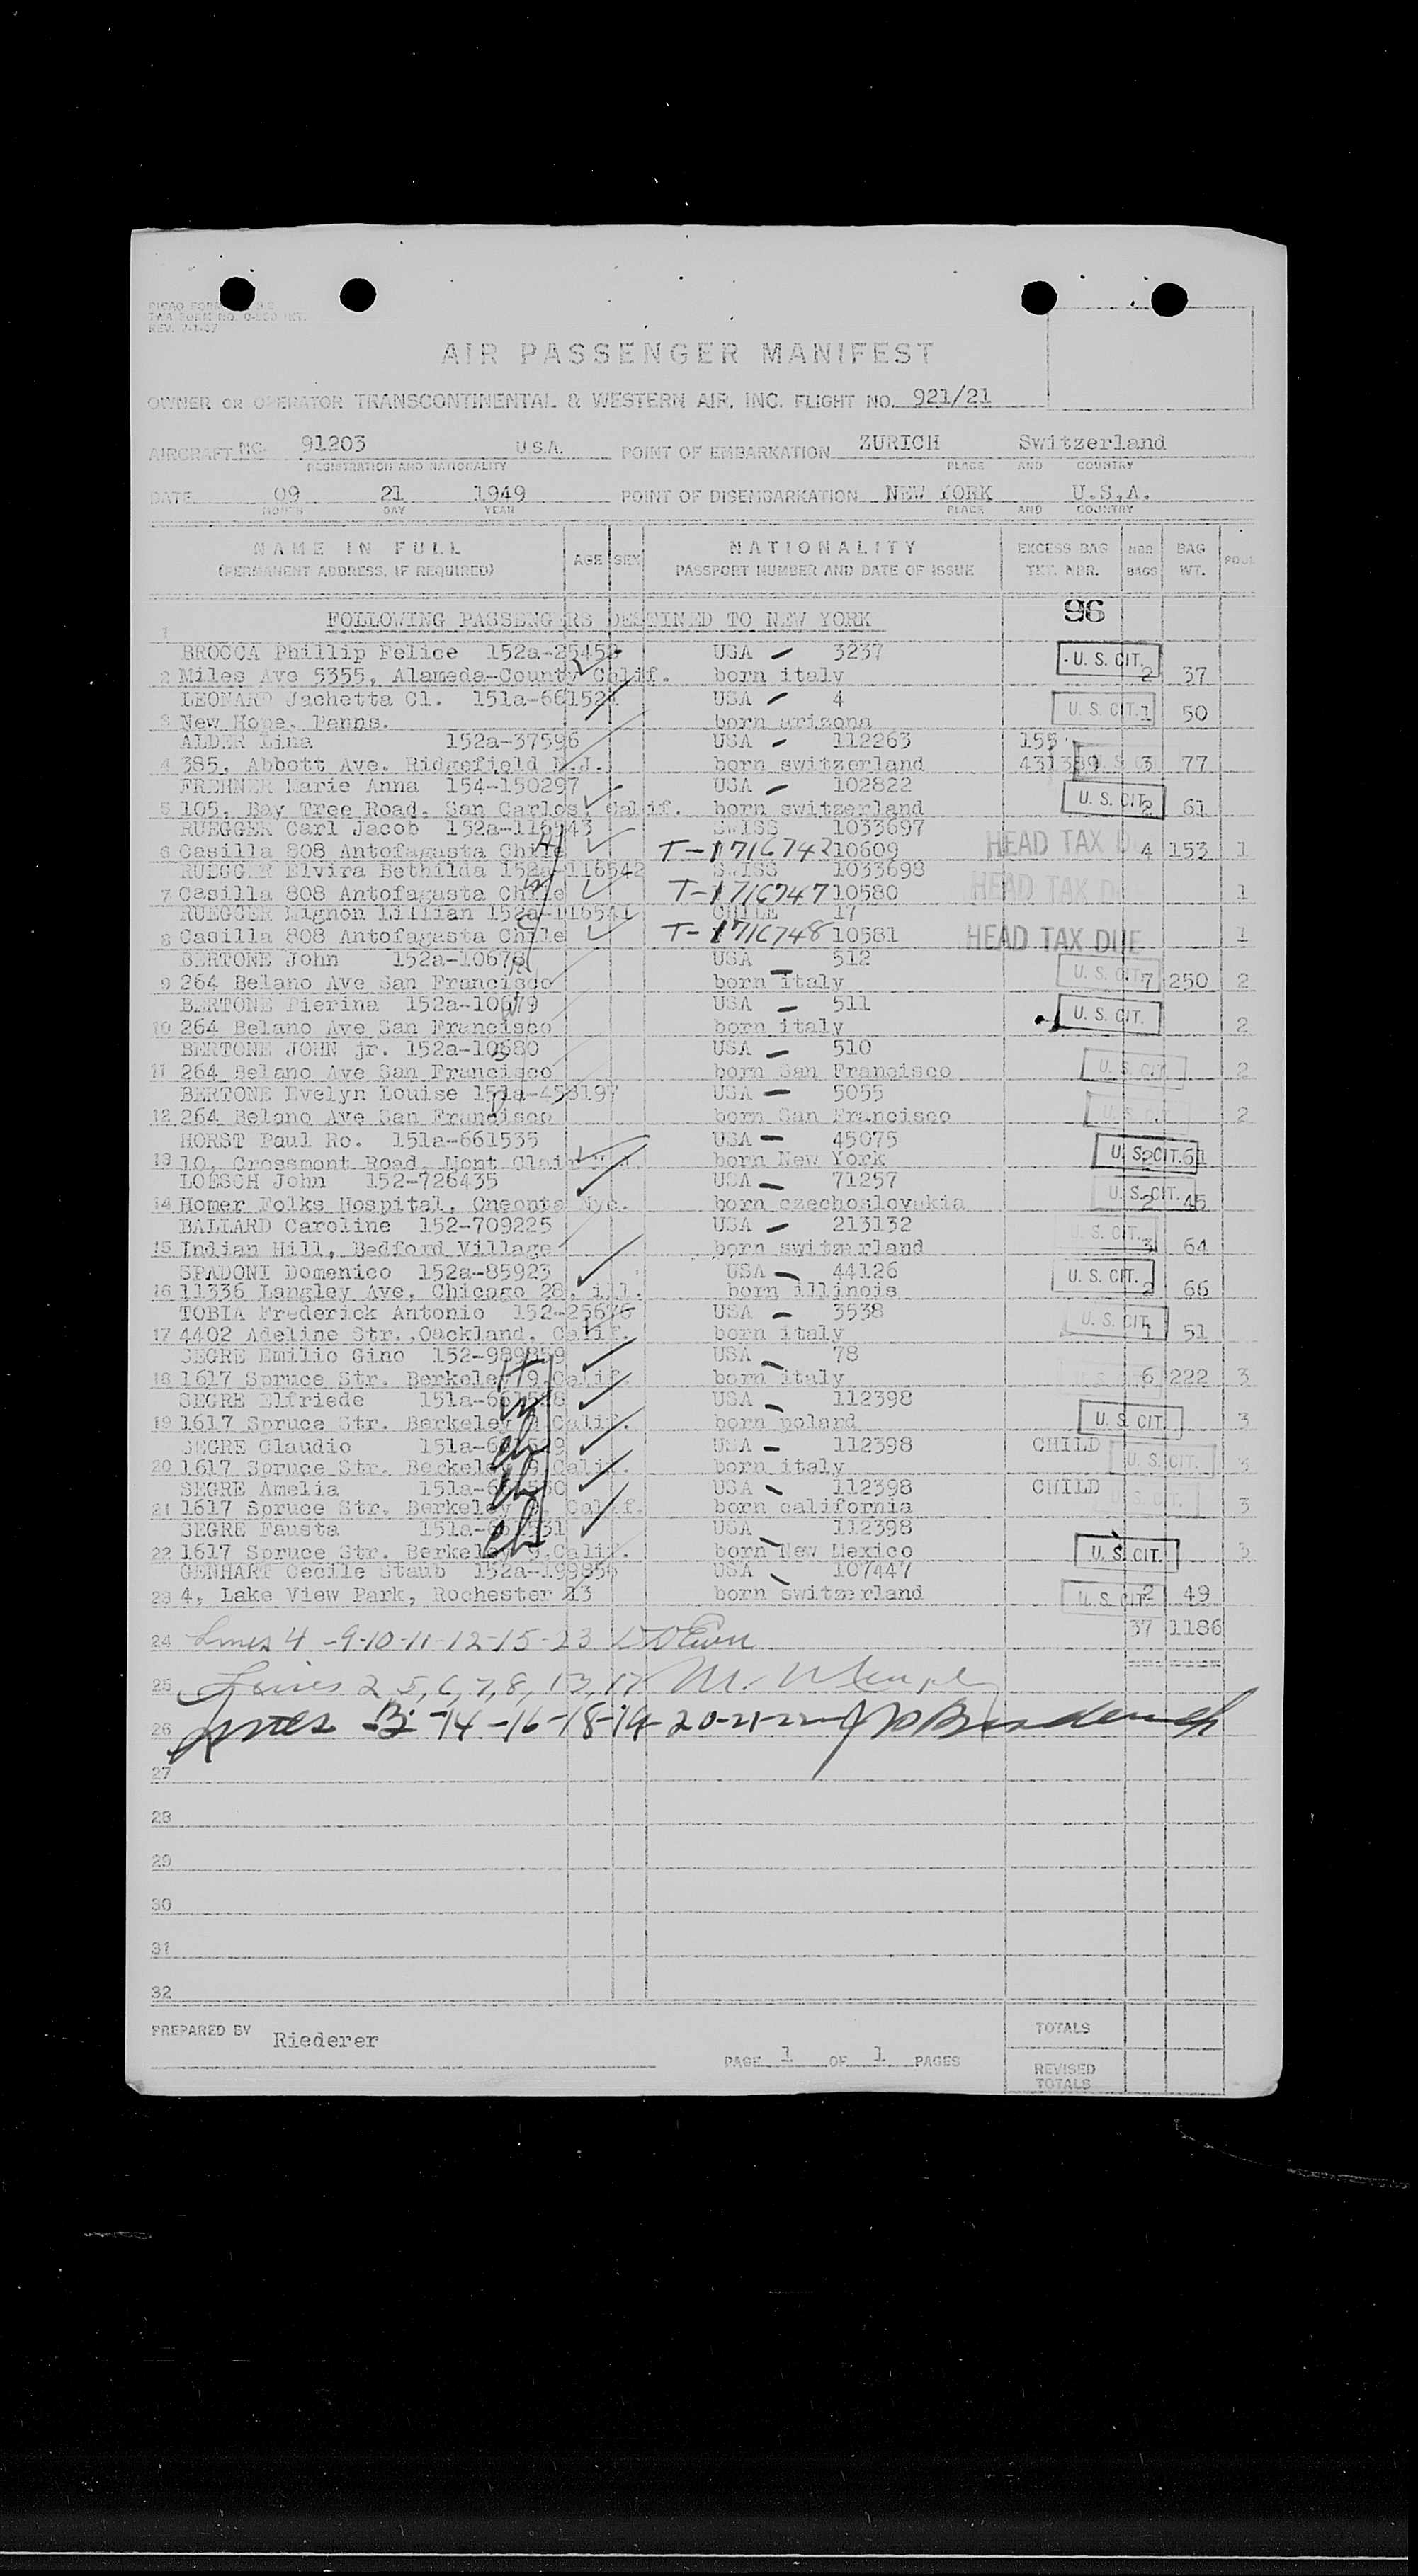 PICAO FORM
TWA FORM NO.
REV. 7-1-47
AIR PASSENGER MANIFEST
OWNER OR OPERATOR TRANSCONTINENTAL & WESTERN AIR, INC. FLIGHT NO. 921/21
AIRCRAFT NC- 91203 U.S.A. POINT OF EMBARKATION ZURICH Switzerland
REGISTRATION AND NATIONALITY PLACE AND COUNTRY
DATE 09 21 1949 POINT OF DISEMBARKATION NEW YORK U.S.A.
MONTH DAY YEAR PLACE AND COUNTRY
NAME IN FULL AGE SEX NATIONALITY EXCESS BAG NBR BAG POOL
(PERMANENT ADDRESS, IF REQUIRED) PASSPORT NUMBER AND DATE OF ISSUE TKT. NBR. BAGS WT.
96
1 FOLLOWING PASSENGERS DESTINED TO NEW YORK
BROCCA Phillip Felice 152a- USA - 3237 U. S. CIT.
2 Miles Ave 5355, Alameda-County Calif. born italy 2 37
LEONARD Jachetta Cl. 151a-661524 USA - 4 U. S. CIT.
3 New Hope, Penns. born arizona 1 50
ALDER Lina 152a-37596 USA - 112263 155
4 385, Abbott Ave. Ridgefield N.J. born switzerland 431389 3 77
FREHNER Marie Anna 154-150297 USA - 102822 U. S. CIT.
5 105, Bay Tree Road, San Carlos, Calif. born switzerland 2 61
RUEGGER Carl Jacob 152a-116543 SWISS 1033697
6 Casilla 808 Antofagasta Chile T-1716742 10609 HEAD TAX 4 153 1
RUEGGER Elvira Bethilda 152a-116542 SWISS 1033698
7 Casilla 808 Antofagasta Chile T-1716747 10580 HEAD TAX 1
RUEGGER Mignon Lillian 152a-116541 CHILE 17
8 Casilla 808 Antofagasta Chile T-1716748 10581 HEAD TAX DUE 1
BERTONE John 152a-10678 USA - 512 U. S. CIT.
9 264 Belano Ave San Francisco born italy 7 250 2
BERTONE Pierina 152a-10679 USA - 511 U. S. CIT.
10 264 Belano Ave San Francisco born italy 2
BERTONE JOHN jr. 152a-10680 USA - 510 U. S. CIT
11 264 Belano Ave San Francisco born San Francisco 2
BERTONE Evelyn Louise 151a-458197 USA - 5055 U. S. C
12 264 Belano Ave San Francisco born San Francisco 2
HORST Paul Ro. 151a-661535 USA - 45075 U. S. CIT.
13 10, Crossmont Road, Mont Clair N.J. born New York 2 61
LOESCH John 152-726435 USA - 71257 U. S. CIT.
14 Homer Folks Hospital, Oneonta Nyc. born czechoslovakia 2 45
BALLARD Caroline 152-709225 USA - 213132 U. S. CIT.
15 Indian Hill, Bedford Village born switzerland 3 64
SPADONI Domenico 152a-85923 USA - 44126 U. S. CIT.
16 11336 Langley Ave, Chicago 28, ill. born illinois 2 66
TOBIA Frederick Antonio 152-25676 USA - 3538 U. S. CIT.
17 4402 Adeline Str., Oackland, Calif. born italy 1 51
SEGRE Emilio Gino 152-989859 USA - 78
18 1617 Spruce Str. Berkeley 9.Calif. born italy 6 222 3
SEGRE Elfriede 151a-661528 USA - 112398 U. S. CIT.
19 1617 Spruce Str. Berkeley 9.Calif. born poland 3
SEGRE Claudio 151a- USA - 112398 CHILD U. S. CIT.
20 1617 Spruce Str. Beckeley 9.Calif. born italy 3
SEGRE Amelia 151a- USA - 112398 CHILD
21 1617 Spruce Str. Berkeley 9. Calif. born california 3
SEGRE Fausta 151a- USA 112398
22 1617 Spruce Str. Berkeley 9.Calif. born New Mexico U. S. CIT. 3
GENHART Cecile Staub 152a-199856 USA - 107447
23 4, Lake View Park, Rochester 13 born switzerland U. S. CIT 2 49
24 Lines 4 -9-10-11-12-15-23 37 1186
25 Lines 2, 5, 6, 7, 8, 13, 17
26 Lines 3 -14 -16-18-19-20-21-22
27
28
29
30
31
32
PREPARED BY Riederer TOTALS
PAGE 1 OF 1 PAGES REVISED
TOTALS